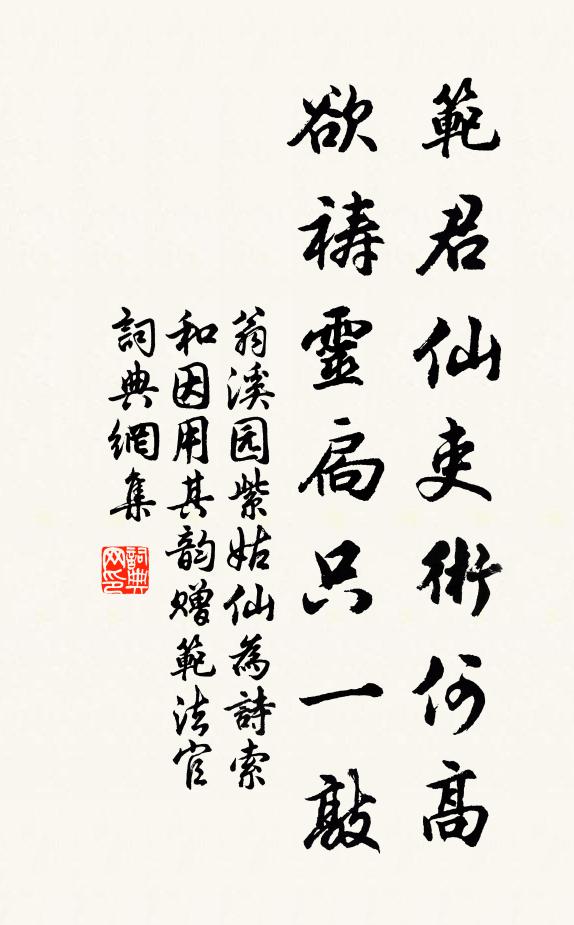 範君仙吏術何高
欲禱靈扃只一敲
翁溪园紫姑仙為詩索
和因用其韵赠範法官
詞典網集
詞典网印